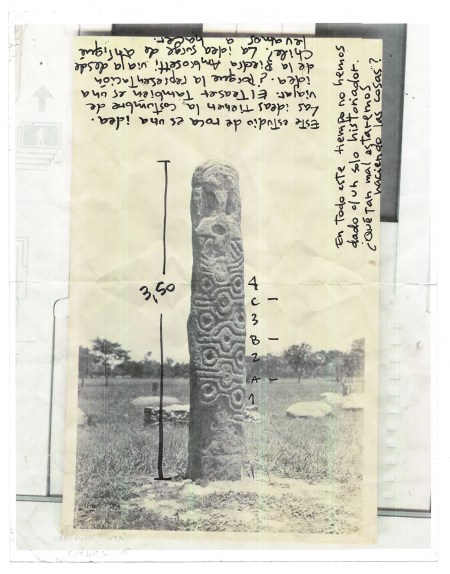 Este estudio de roca es una idea.
Las ideas tienen la costumbre de
viajar. El Teaser también es una
idea. ¿Porque la representación
de la Piedra Ambrosetti viaja desde
Chile. La idea surge de
vamos a hacer.
En todo este tiempo no hemos
dado c/un solo historiador.
¿Qué tan mal estaremos
haciendo las cosas?
3'50
4
C —
3
B —
2
A —
1